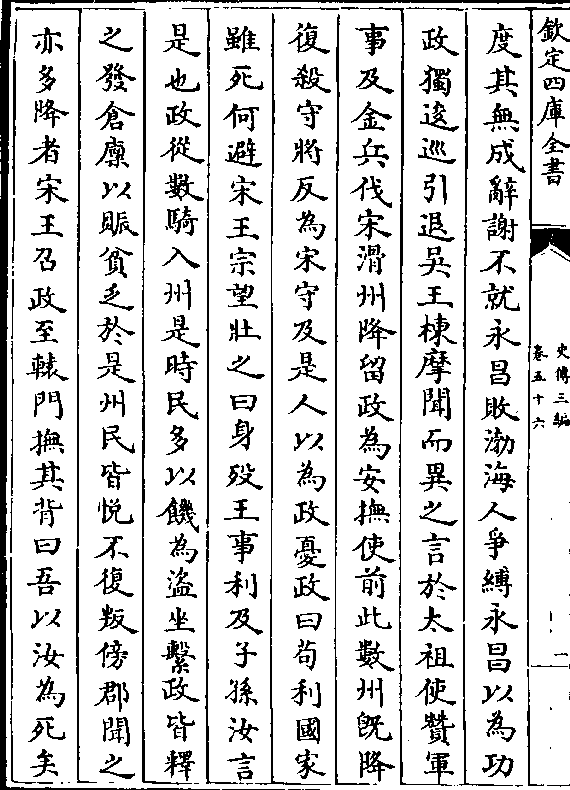 欽定四庫全書
史傳三編
卷五十六
一
度其無成辭謝不就永昌敗渤海人爭縛永昌以為功
政獨逡巡引退吳王棟摩聞而異之言於太祖使贊軍
事及金兵伐宋滑州降留政為安撫使前此數州既降
復殺守將反為宋守及是人以為政憂政曰苟利國家
雖死何避宋王宗望壯之曰身殁王事利及子孫汝言
是也政從數騎入州是時民多以饑為盜坐繫政皆釋
之發倉廩以賑貧乏於是州民皆悦不復叛傍郡聞之
亦多降者宋王召政至轅門撫其背曰吾以汝為死矣